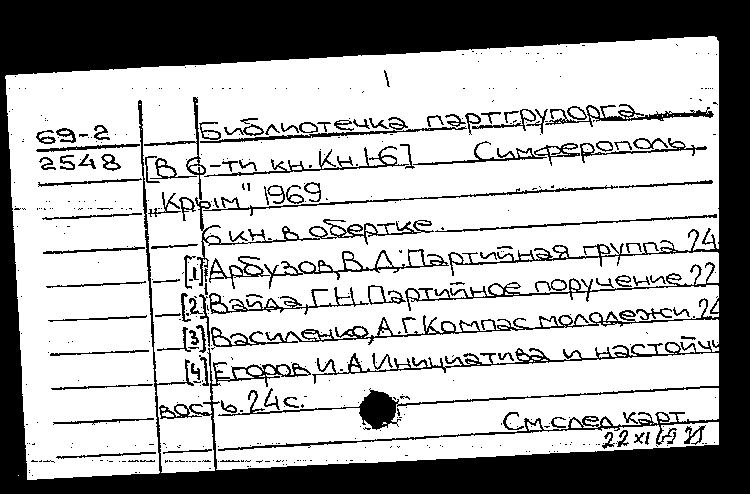 1
69-2 Библиотечка партгрупорга
2548 [В 6-ти кн. Кн. 1-6] Симферополь,
„Крым", 1969.
6 кн. в обертке.
[1] Арбузов, В.Д. Партийная группа. 24
[2] Вайда, Г.Н. Партийное поручение. 22
[3] Василенко, А.Г. Компас молодежи. 24
[4] Егоров, И.А. Инициатива и настойчи
вость. 24 с.
См. след. карт.
22 XI 69